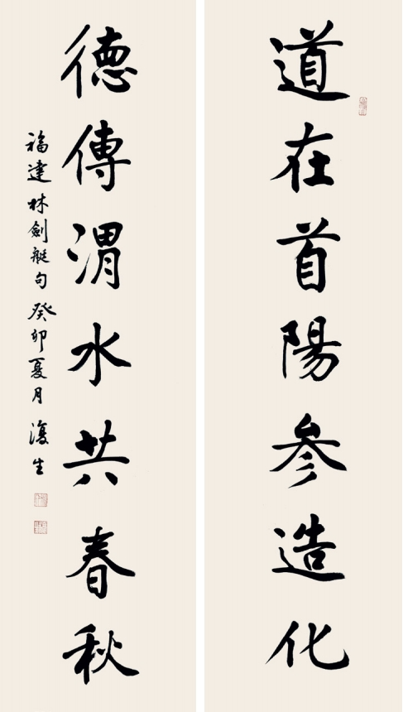 道在首陽參造化
德傳渭水共春秋
福達林劍艇句癸卯夏月復生